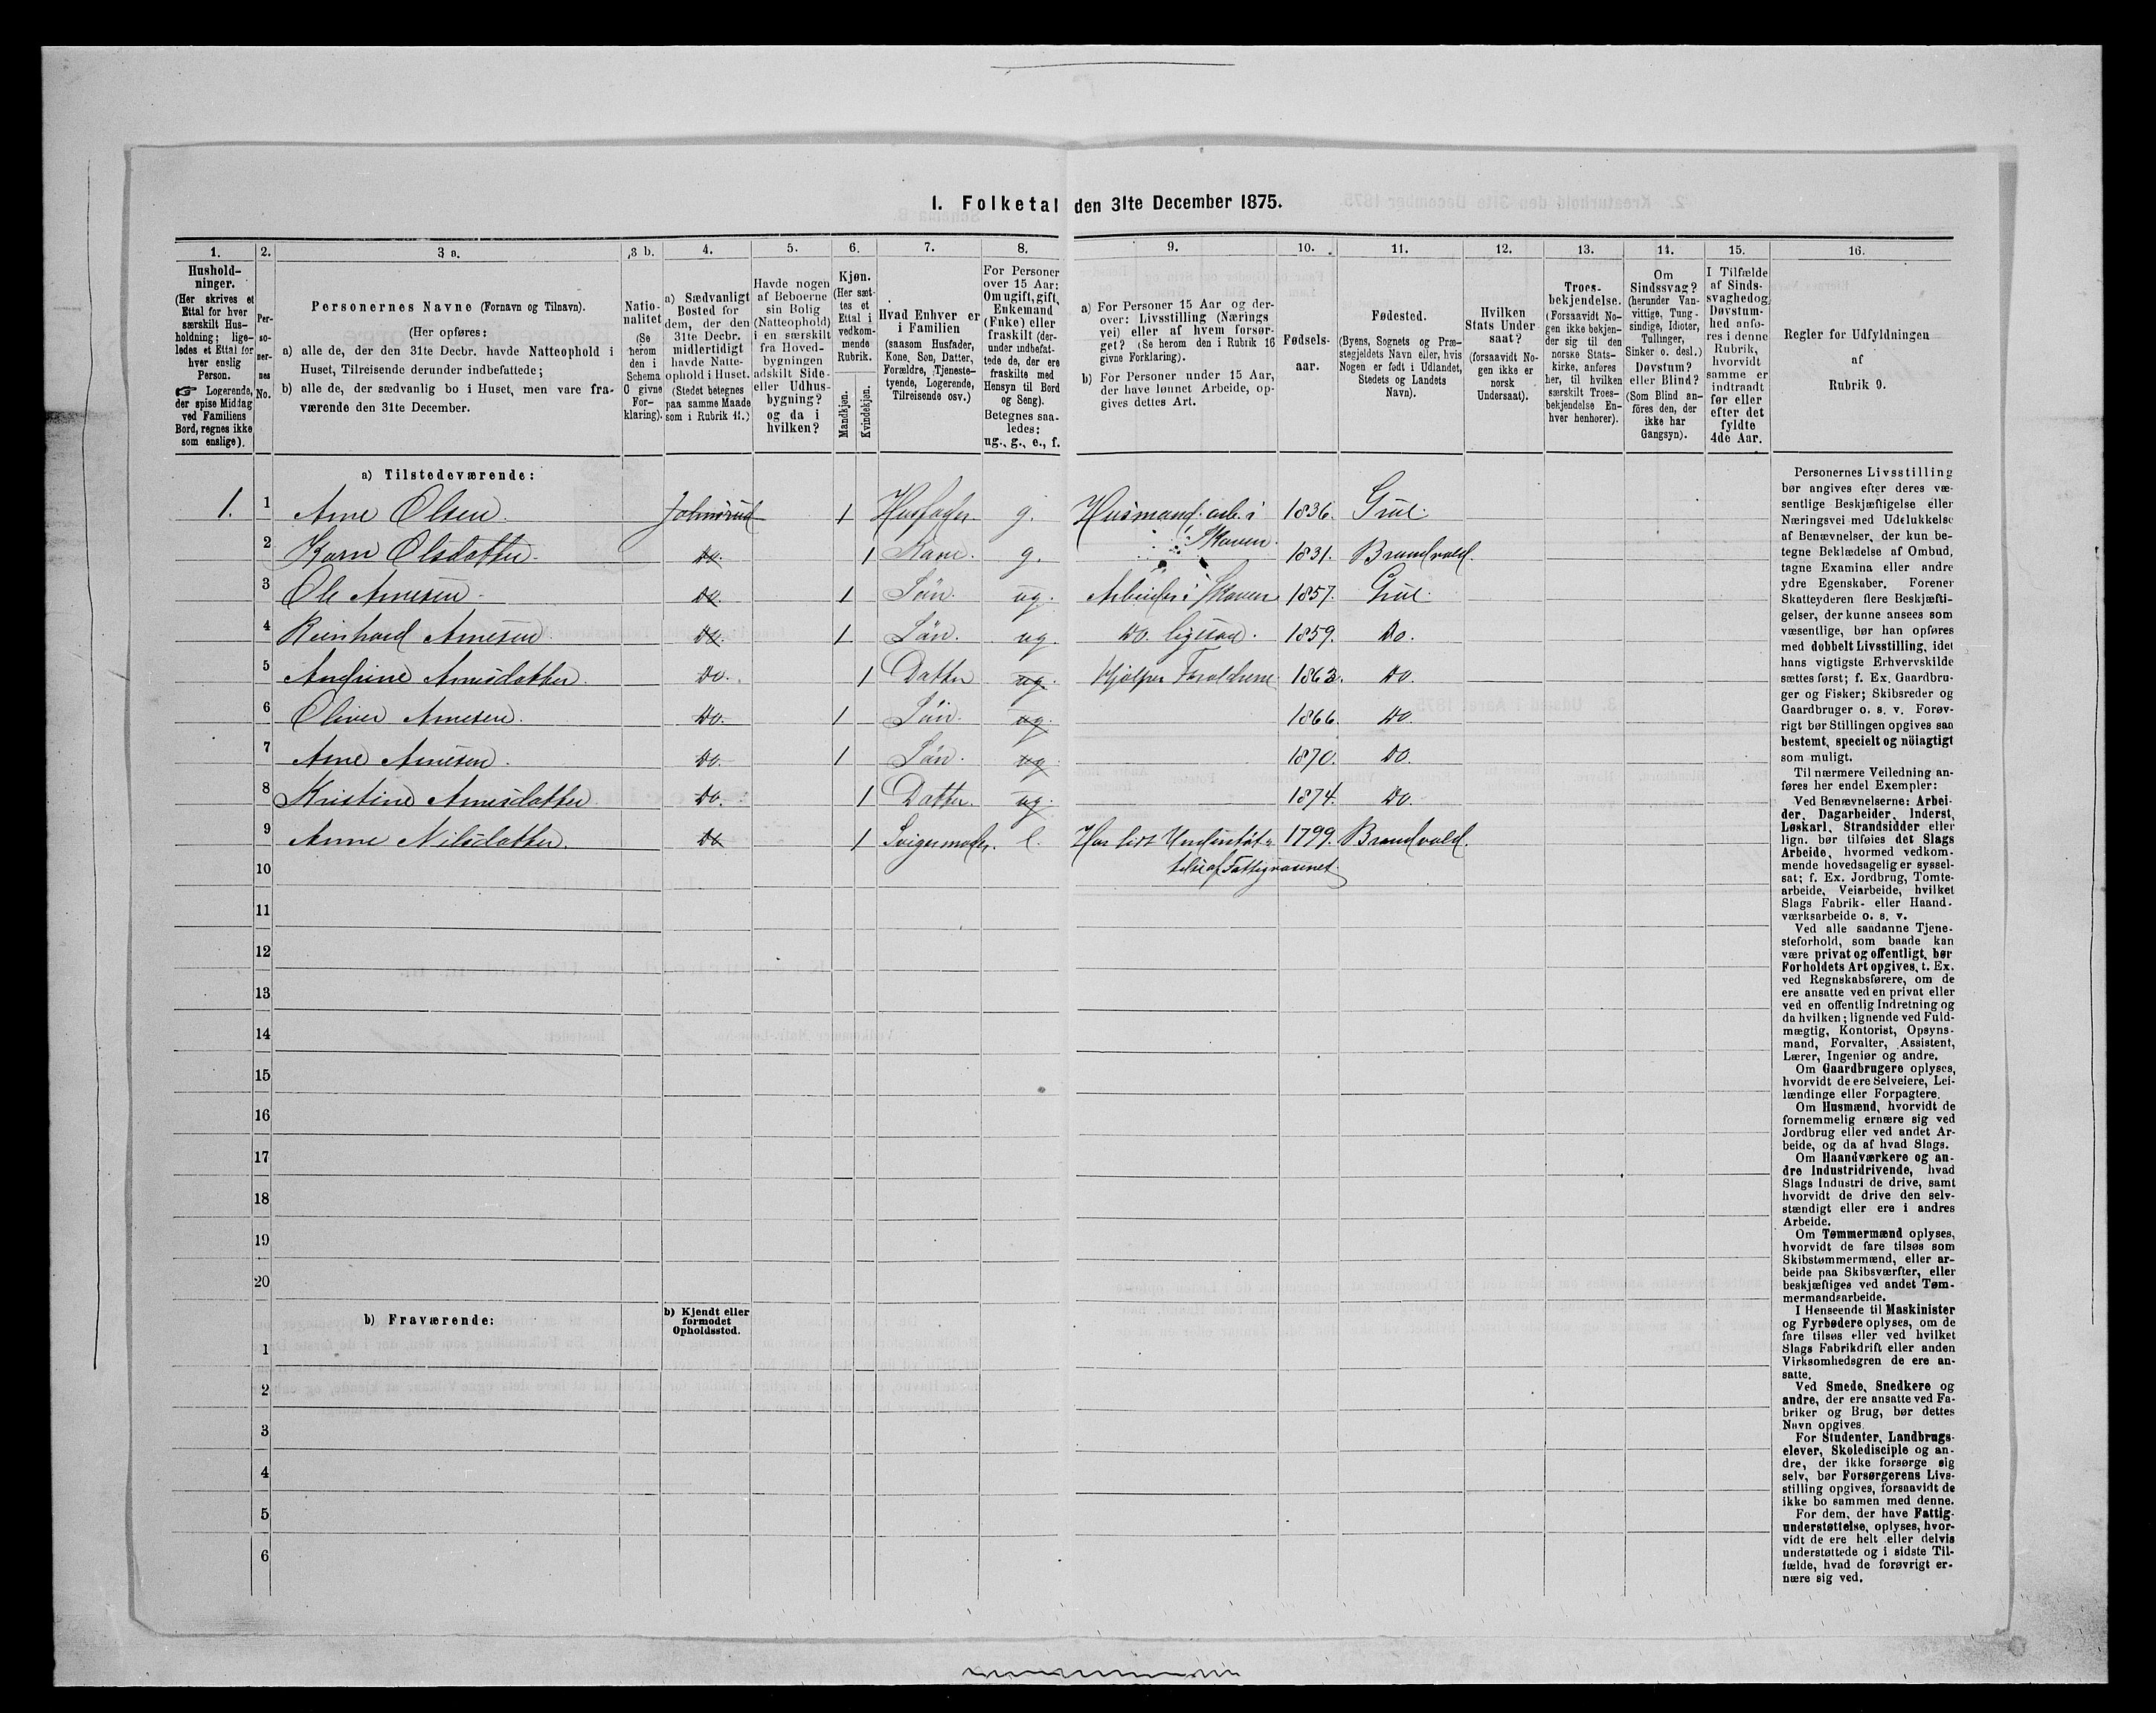 1. Folketal den 31te December 1875.
1. 2. 3 a. 3 b. 4. 5. 6. 7. 8. 9. 10. 11. 12. 13. 14. 15. 16.
Hushold-
ninger.
(Her skrives et
Ettal for hver
særskilt Hus-
holdning; lige-
ledes et Ettal for
hver enslig
Person.
☞ Logerende,
der spise Middag
ved Familiens
Bord, regnes ikke
som enslige).
Per-
so-
ner-
nes
No.
Personernes Navne (Fornavn og Tilnavn).
(Her opføres:
a) alle de, der den 31te Decbr. havde Natteophold i
Huset, Tilreisende derunder indbefattede;
b) alle de, der sædvanlig bo i Huset, men vare fra-
værende den 31te December.
Natio-
nalitet
(Se
herom
den i
Schema
O givne
For-
klaring).
a) Sædvanligt
Bosted for
dem, der den
31te Decbr.
midlertidigt
havde Natte-
ophold i Huset.
(Stedet betegnes
paa samme Maade
som i Rubrik 11.)
Havde nogen
af Beboerne
sin Bolig
(Natteophold)
i en særskilt
fra Hoved-
bygningen
adskilt Side-
eller Udhus-
bygning?
og da i
hvilken?
Kjøn.
(Her sæt-
tes et
Ettal i
vedkom-
mende
Rubrik.
Mandkjøn.
Kvindekjøn.
Hvad Enhver er
i Familien
(saasom Husfader,
Kone, Søn, Datter,
Forældre, Tjeneste-
tyende, Logerende,
Tilreisende osv.)
For Personer
over 15 Aar:
Om ugift, gift,
Enkemand
(Enke) eller
fraskilt (der-
under indbefat-
tede de, der ere
fraskilte med
Hensyn til Bord
og Seng).
Betegnes saa-
ledes:
ug., g., e., f.
a) For Personer 15 Aar og der-
over: Livsstilling (Nærings
vei) eller af hvem forsør-
get? (Se herom den i Rubrik 16
givne Forklaring).
b) For Personer under 15 Aar,
der have lønnet Arbeide, op-
gives dettes Art.
Fødsels-
aar.
Fødested.
(Byens, Sognets og Præ-
stegjeldets Navn eller, hvis
Nogen er født i Udlandet,
Stedets og Landets
Navn).
Hvilken
Stats Under
saat?
(forsaavidt No-
gen ikke er
norsk
Undersaat).
Troes-
bekjendelse.
(Forsaavidt No-
gen ikke bekjen-
der sig til den
norske Stats-
kirke, anføres
her, til hvilken
særskilt Troes-
bekjendelse En-
hver henhører).
Om
Sindssvag?
(herunder Van-
vittige, Tung-
sindige, Idioter,
Tullinger,
Sinker o. desl.)
Døvstum?
eller Blind?
(Som Blind an-
føres den, der
ikke har
Gangsyn).
I Tilfælde
af Sinds-
svaghedog
Døvstum-
hed anfø-
res i denne
Rubrik,
hvorvidt
samme er
indtraadt
før eller
efter det
fyldte
4de Aar.
Regler for Udfyldningen
af
Rubrik 9.
a) Tilstedeværende:
1. 1 Arne Olsen. Johnsrud 1 Husfader. g. Husmand. arb. i Skoven 1836. Grue.
2 Karn Olsdatter. Do. 1 Kone. g. 1831. Brandvold.
3 Ole Arnesen. Do. 1 Søn. ug. Arbeider i Skoven 1857. Grue.
4 Reinhard Arnesen. Do. 1 Søn. ug. Do. ligesaa. 1859. Do.
5 Andrine Arnesdatter. Do. 1 Datter ug. Hjælper Forældrene 1863. Do.
6 Oliver Arnesen. Do. 1 Søn. ug. 1866. Do.
7 Arne Arnesen. Do. 1 Søn. ug. 1870. Do.
8 Kristine Arnesdatter Do. 1 Datter. ug. 1874. Do.
9 Anne Nilsdatter. Do. 1 Svigermoder. e. Har lidt Understøt- 1799. Brandvold.
10 telse af Fattigvæsnet.
11
12
13
14
15
16
17
18
19
20
b) Fraværende:
b) Kjendt eller
formodet
Opholdssted.
1
2
3
4
5
6
Personernes Livsstilling
bør angives efter deres væ-
sentlige Beskjæftigelse eller
Næringsvei med Udelukkelse
af Benævnelser, der kun be-
tegne Beklædelse af Ombud,
tagne Examina eller andre
ydre Egenskaber. Forener
Skatteyderen flere Beskjæfti-
gelser, der kunne ansees som
væsentlige, bør han opføres
med dobbelt Livsstilling, idet
hans vigtigste Erhvervskilde
sættes først; f. Ex. Gaardbru-
ger og Fisker; Skibsreder og
Gaardbruger o. s. v. Forøv-
rigt bør Stillingen opgives saa
bestemt, specielt og nöiagtigt
som muligt.
Til nærmere Veiledning an-
føres her endel Exempler:
Ved Benævnelserne: Arbei-
der, Dagarbeider, Inderst,
Løskarl, Strandsidder eller
lign. bør tilføies det Slags
Arbeide, hvormed vedkom-
mende hovedsagelig er syssel-
sat; f. Ex. Jordbrug, Tomte-
arbeide, Veiarbeide, hvilket
Slags Fabrik- eller Haand-
værksarbeide o. s. v.
Ved alle saadanne Tjene-
steforhold, som baade kan
være privat og offentligt, bør
Forholdets Art opgives, t. Ex.
ved Regnskabsførere, om de
ere ansatte ved en privat eller
ved en offentlig Indretning og
da hvilken; lignende ved Fuld-
mægtig, Kontorist, Opsyns-
mand, Forvalter, Assistent,
Lærer, Ingeniør og andre.
Om Gaardbrugere oplyses,
hvorvidt de ere Selveiere, Lei-
lændinge eller Forpagtere.
Om Husmænd, hvorvidt de
fornemmelig ernære sig ved
Jordbrug eller ved andet Ar-
beide, og da af hvad Slags.
Om Haandværkere og an-
dre Industridrivende, hvad
Slags Industri de drive, samt
hvorvidt de drive den selv-
stændigt eller ere i andres
Arbeide.
Om Tømmermænd oplyses,
hvorvidt de fare tilsøs som
Skibstømmermænd, eller ar-
beide paa Skibsværfter, eller
beskjæftiges ved andet Tøm-
mermandsarbeide.
I Henseende til Maskinister
og Fyrbødere oplyses, om de
fare tilsøs eller ved hvilket
Slags Fabrikdrift eller anden
Virksomhedsgren de ere an-
satte.
Ved Smede, Snedkere og
andre, der ere ansatte ved Fa-
briker og Brug, bør dettes
Navn opgives.
For Studenter, Landbrugs-
elever, Skoledisciple og an-
dre, der ikke forsørge sig
selv, bør Forsørgerens Livs-
stilling opgives, forsaavidt de
ikke bo sammen med denne.
For dem, der have Fattig-
understøttelse, oplyses, hvor-
vidt de ere helt eller delvis
understøttede og i sidste Til-
fælde, hvad de forøvrigt er-
nære sig ved.